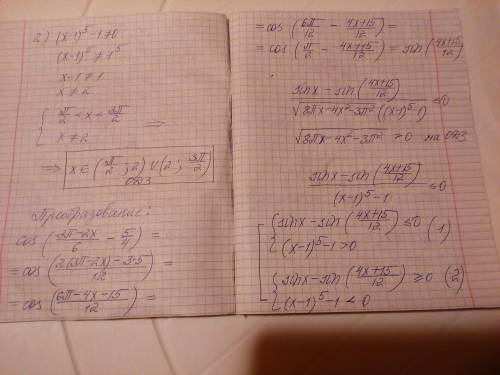 2) (x-1)^5-1≠0
(x-1)^5 ≠ 1^5
x-1≠1
x≠2
{ π/2 < x < 3π/2
x≠2 ⇒
⇒ x∈(π/2; 2)∪(2; 3π/2)
ОДЗ
Преобразование:
cos(3π-2x/6 - 5/4) =
= cos(2(3π-2x)-3·5/12) =
= cos(6π-4x-15/12) =
= cos(6π/12 - 4x+15/12) =
= cos(π/2 - 4x+15/12) = sin(4x+15/12)
sinx-sin(4x+15/12)/√8πx-4x²-3π² ((x-1)^5-1) ≤0
√8πx-4x²-3π² >0 на ОДЗ
sinx-sin(4x+15/12)/(x-1)^5-1 ≤0
[ { sinx-sin(4x+15/12) ≤0 (1)
(x-1)^5-1>0
{ sinx-sin(4x+15/12) ≥0 (2)
(x-1)^5-1<0